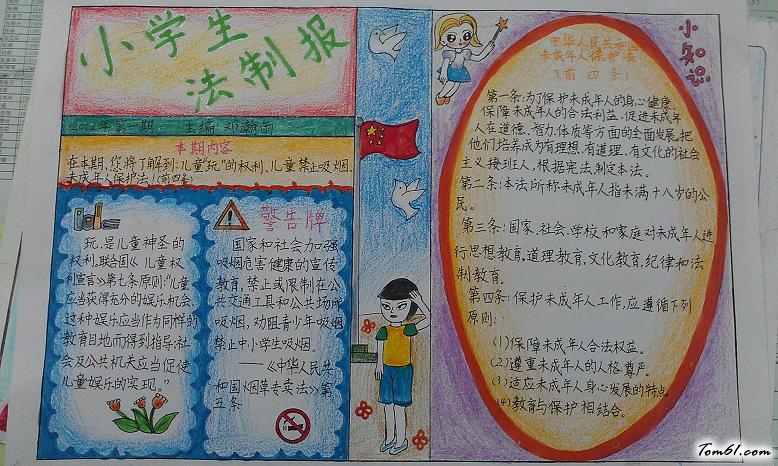 小学生
法制报
2012年第一期 主编 邓瀚雨
本期内容
在本期,您将了解到:儿童"玩"的权利、儿童禁止吸烟、
未成年人保护法(前四条)
玩,是儿童神圣的
权利,联合国《儿童权
利宣言》第七条原则:"儿童
应当获得充分的娱乐机会,
这种娱乐应当作为同样的
教育目地而得到指导:社
会及公共机关应当促使
儿童娱乐的实现。"
警告牌
国家和社会加强
吸烟危害健康的宣传
教育,禁止或限制在公
共交通工具和公共场所
吸烟,劝阻青少年吸烟,
禁止中小学生吸烟.
——《中华人民共
和国烟草专卖法》第
五条
小知识
中华人民共和国
未成年人保护法
(前四条)
第一条:为了保护未成年人的身心健康,
保障未成年人的合法利益,促进未成年
人在道德、智力、体质等方面的全面发展,把
他们培养成为有理想、有道理、有文化的社会
主义接班人,根据宪法,制定本法。
第二条:本法所称未成年人指未满十八岁的公
民。
第三条:国家、社会、学校和家庭对未成年人进
行思想教育,道理教育,文化教育,纪律和法
制教育.
第四条:保护未成年人工作,应遵循下列
原则:
(1)保障未成年人合法权益。
(2)尊重未成年人的人格尊严。
(3)适应未成年人身心发展的特点。
(4)教育与保护相结合。
Tom61.com